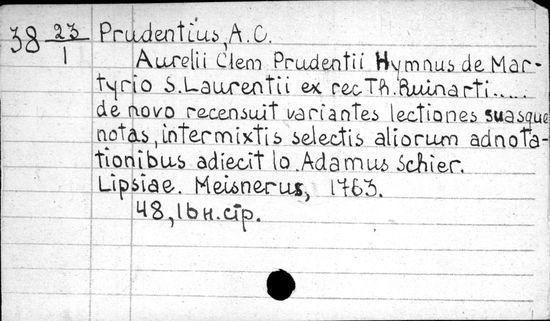 38 23/1 Prudentius, A.C.
Aurelii Clem Prudentii Hymnus de Mar-
tyrio S. Laurentii ex rec Th. Ruinarti.....
de novo recensuit variantes lectiones suasque
notas, intermixtis selectis aliorum adnota-
tionibus adiecit Io. Adamus Schier.
Lipsiae. Meisnerus, 1763.
48, 16 н. стр.